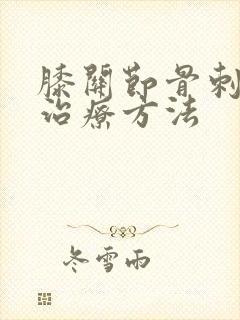 膝關節骨刺
治療方法
冬雪雨